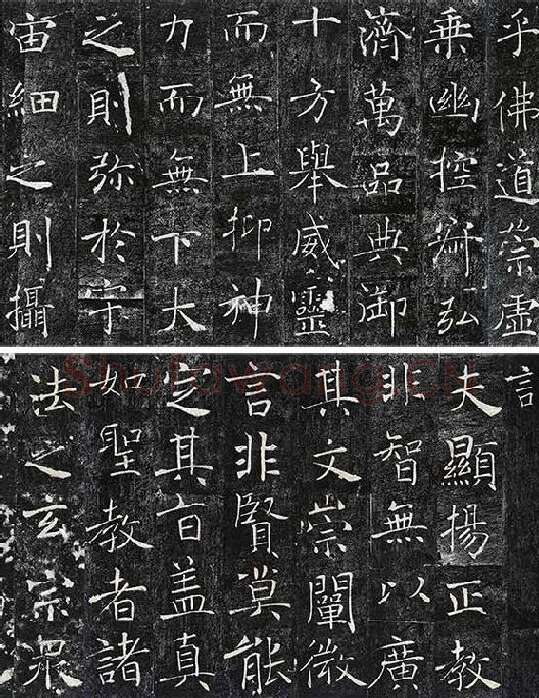 乎佛道崇虛
乘幽控寂弘
濟萬品典御
十方舉威靈
而無上抑神
力而無下大
之則弥於宇
宙細之則攝
言
夫顯揚正教
非智無以廣
其文崇闡微
言非賢莫能
定其旨盖真
如聖教者諸
法之玄宗眾
Shufawang.cn